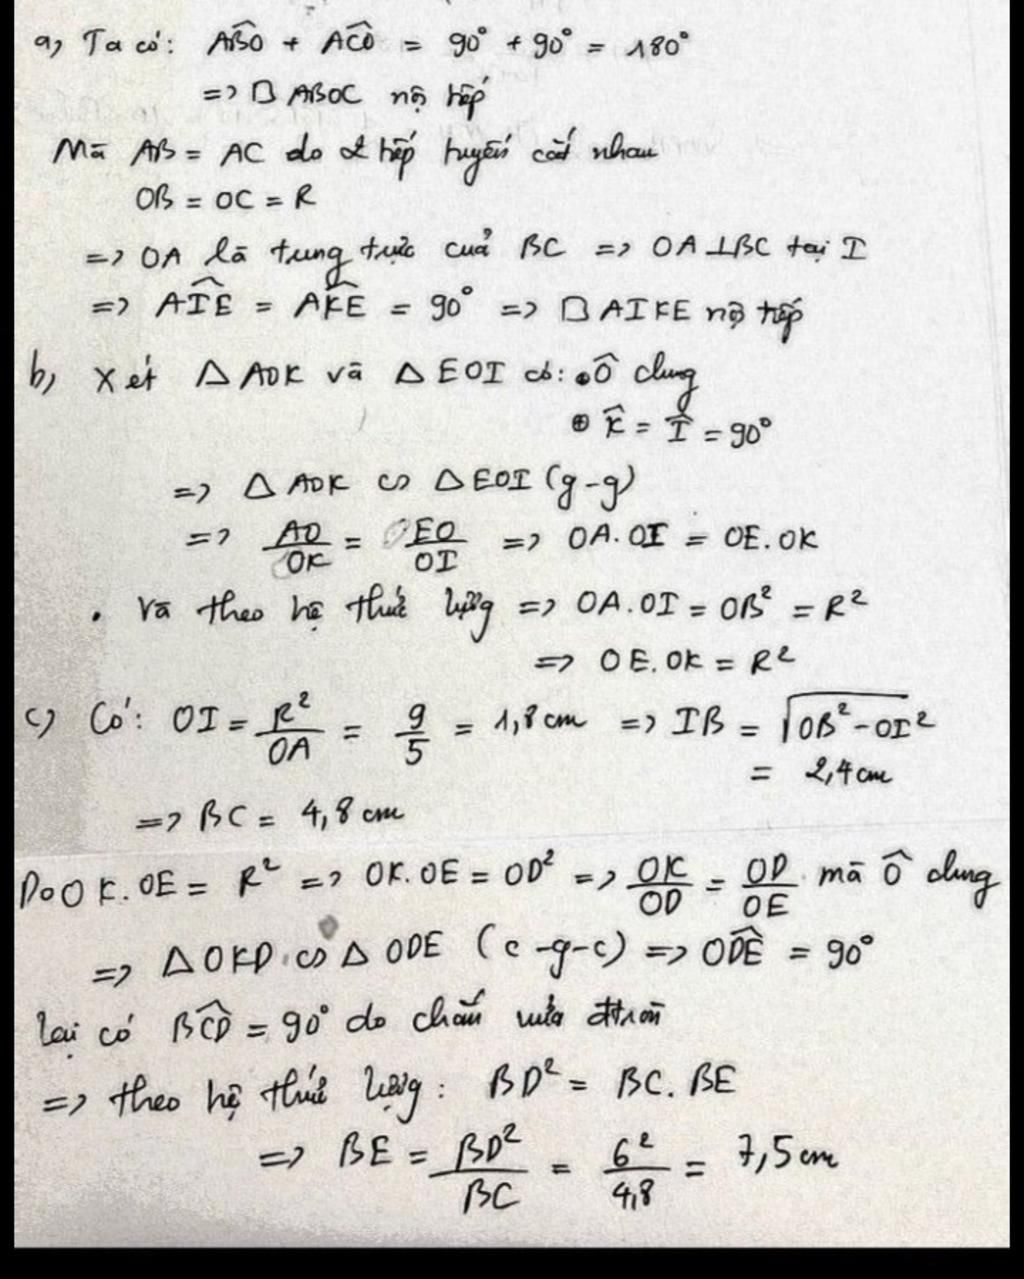 a) Ta có: ABO + ACO = 90° + 90° = 180°
=> □ ABOC nội tiếp
Mà AB = AC do 2 tiếp tuyến cắt nhau
OB = OC = R
=> OA là trung trực của BC => OA ⊥ BC tại I
=> AIE = AKE = 90° => □ AIKE nội tiếp
b) Xét △ AOK và △ EOI có: • Ô chung
⊕ K̂ = Î = 90°
=> △ AOK ∽ △ EOI (g-g)
=> AO/OK = EO/OI => OA.OI = OE.OK
. Và theo hệ thức lượng => OA.OI = OB² = R²
=> OE.OK = R²
c) Có: OI = R²/OA = 9/5 = 1,8 cm => IB = √OB² - OI²
= 2,4 cm
=> BC = 4,8 cm
Do OK.OE = R² => OK.OE = OD² => OK/OD = OD/OE mà Ô chung
=> △ OKD ∽ △ ODE (c-g-c) => ODE = 90°
lại có BCD = 90° do chắn nửa đtròn
=> theo hệ thức lượng: BD² = BC.BE
=> BE = BD²/BC = 6²/4,8 = 7,5 cm